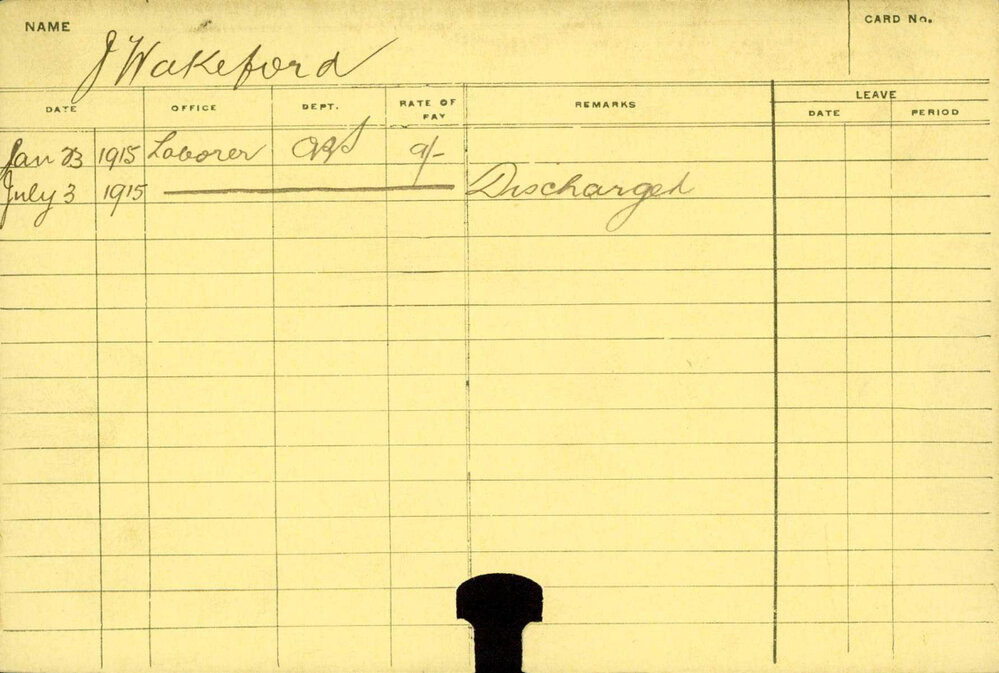 NAME
J Wakeford
CARD No.
DATE OFFICE DEPT. RATE OF PAY REMARKS LEAVE
DATE PERIOD
Jan 23 1915 Laborer 9/-
July 3 1915 Discharged